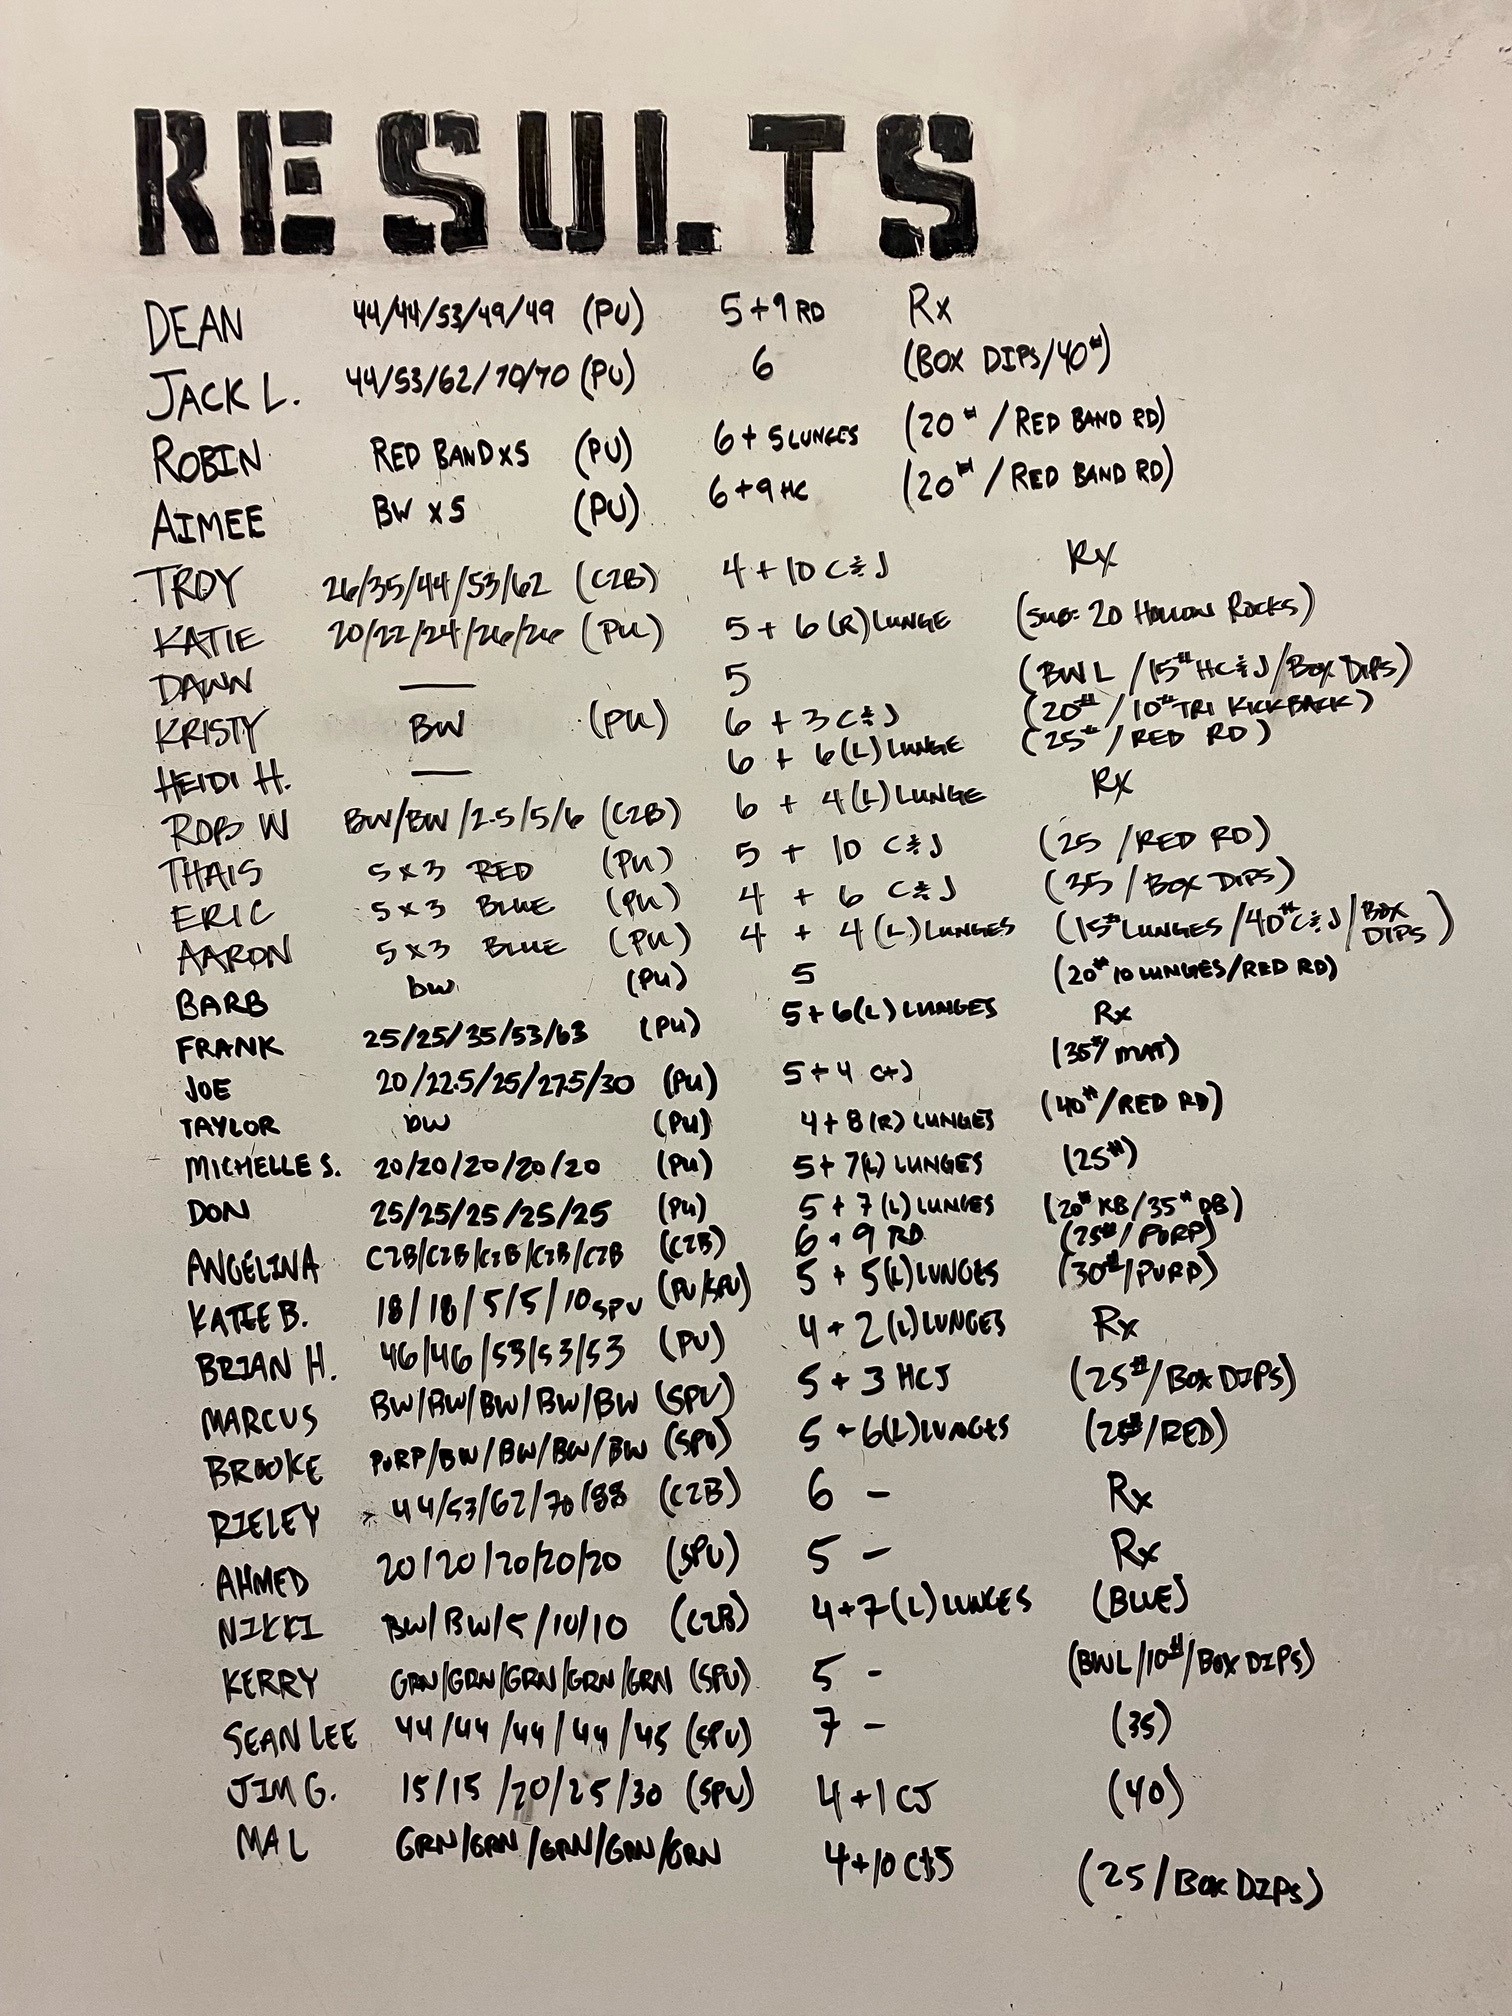 RESULTS
DEAN 44/44/53/49/49 (PU) 5+9 RD Rx
JACK L. 44/53/62/70/70 (PU) 6 (BOX DIPS/40#)
ROBIN RED BAND x5 (PU) 6+5 LUNGES (20#/RED BAND RD)
AIMEE BW x5 (PU) 6+9 HC (20#/RED BAND RD)
TROY 26/35/44/53/62 (C2B) 4+10 C&J Rx
KATIE 20/22/24/26/26 (PU) 5+6(R) LUNGE (SUB: 20 HOLLOW ROCKS)
DAWN — 5 (BWL/15# HC&J/BOX DIPS)
KRISTY BW (PU) 6+3 C&J (20#/10# TRI KICKBACK)
HEIDI H. — 6+6(L) LUNGE (25#/RED RD)
ROB W BW/BW/2.5/5/6 (C2B) 6+4(L) LUNGE Rx
THAIS 5x3 RED (PU) 5+10 C&J (25/RED RD)
ERIC 5x3 BLUE (PU) 4+6 C&J (35/BOX DIPS)
AARON 5x3 BLUE (PU) 4+4(L) LUNGES (15# LUNGES/40# C&J/BOX DIPS)
BARB bw (PU) 5 (20# 10 LUNGES/RED RD)
FRANK 25/25/35/53/63 (PU) 5+6(L) LUNGES Rx
JOE 20/22.5/25/27.5/30 (PU) 5+4 C+J (35#/MAT)
TAYLOR bw (PU) 4+8(R) LUNGES (40#/RED RD)
MICHELLE S. 20/20/20/20/20 (PU) 5+7(L) LUNGES (25#)
DON 25/25/25/25/25 (PU) 5+7(L) LUNGES (20# KB/35# DB)
ANGELINA C2B/C2B/C2B/C2B/C2B (C2B) 6+9 RD (25#/PURP)
KATIE B. 18/18/5/5/10 SPU (PU/SPU) 5+5(L) LUNGES (30#/PURP)
BRIAN H. 46/46/53/53/53 (PU) 4+2(L) LUNGES Rx
MARCUS BW/BW/BW/BW/BW (SPU) 5+3 HCJ (25#/BOX DIPS)
BROOKE PURP/BW/BW/BW/BW (SPU) 5+6(L) LUNGES (25#/RED)
RIELEY * 44/53/62/70/88 (C2B) 6 - Rx
AHMED 20/20/20/20/20 (SPU) 5 - Rx
NIKKI BW/BW/5/10/10 (C2B) 4+7(L) LUNGES (BLUE)
KERRY GRN/GRN/GRN/GRN/GRN (SPU) 5 - (BWL/10#/BOX DIPS)
SEAN LEE 44/44/44/44/45 (SPU) 7 - (35)
JIM G. 15/15/20/25/30 (SPU) 4+1 CJ (40)
MAL GRN/GRN/GRN/GRN/GRN 4+10 C&J (25/BOX DIPS)